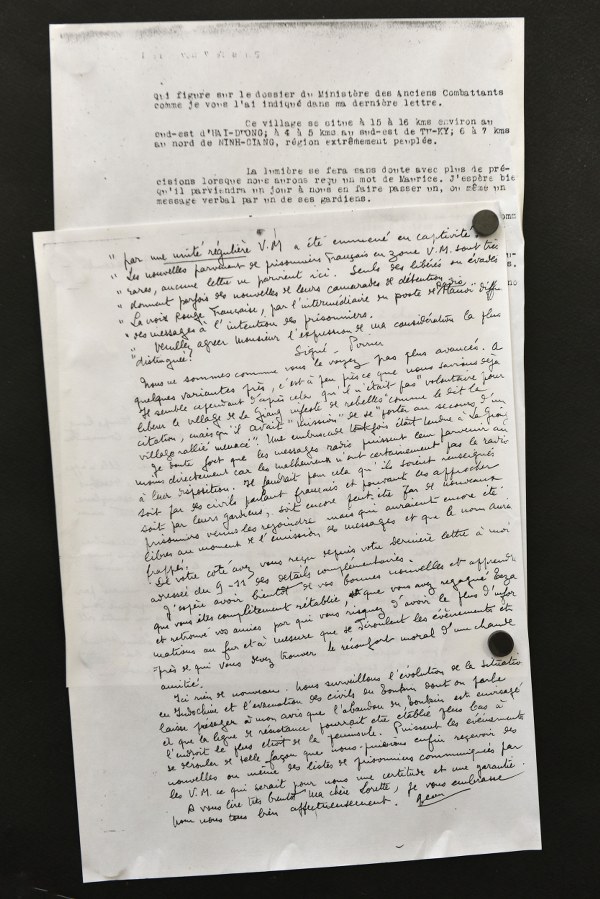 qui figure sur le dossier du Ministère des Anciens Combattants
comme je vous l'ai indiqué dans ma dernière lettre.
Ce village se situe à 15 à 16 kms environ au
sud-est d'HAI-DUONG; à 4 à 5 kms au sud-est de TU-KY; 6 à 7 kms
au nord de NINH-GIANG, région extrêmement peuplée.
La lumière se fera sans doute avec plus de pré-
cisions lorsque nous aurons reçu un mot de Maurice. J'espère bie
qu'il parviendra un jour à nous en faire passer un, ou même un
message verbal par un de ses gardiens.
omm
" par une unité régulière V.M a été emmené en captivité.
" Les nouvelles parvenant de prisonniers français en zone V.M. sont très
" rares, aucune lettre ne parvient ici. Seuls des libérés ou évadés
" donnent parfois des nouvelles de leurs camarades de détention.
" La Croix Rouge Française, par l'intermédiaire du poste de Radio "Hanoï" diffu
" des messages à l'intention des prisonniers.
" Veuillez agréer Monsieur l'expression de ma considération la plus
" distinguée."
Signé.
Nous ne sommes comme vous le voyez pas plus avancés. A
quelques variantes près, c'est à peu près ce que nous savions déjà
Il semble cependant d'après cela qu'il n'était pas "volontaire pour
libérer le village de Le Giang infesté de rebelles" comme le dit la
citation, mais qu'il avait "mission" de se "porter au secours d'un
village rallié menacé". Une embuscade était tendue à Le Giang
Je doute fort que les messages radio puissent leur parvenir au
moins directement car les malheureux n'ont certainement pas la radio
à leur disposition. Il faudrait pour cela qu'ils soient renseignés
soit par des civils parlant français et pouvant les approcher
soit par leurs gardiens, soit encore peut-être par de nouveaux
prisonniers venus les rejoindre mais qui auraient encore été
libres au moment de l'émission des messages et que le nom aura
frappé.
De votre côté avez vous reçu depuis votre dernière lettre à moi
adressée du 9-11 des détails complémentaires.
J'espère avoir bientôt de vos bonnes nouvelles et apprendr
que vous êtes complètement rétablie, que vous avez regagné
et retrouvé vos amies par qui vous risquez d'avoir le plus d'infor
mations au fur et à mesure que se déroulent les évènements et
près de qui vous devez trouver le réconfort moral d'une chaude
amitié.
Ici rien de nouveau. Nous surveillons l'évolution de la situatio
en Indochine et l'évacuation des civils du Tonkin dont on parle
laisse présager à mon avis que l'abandon du Tonkin est envisagé
et que la ligne de résistance pourrait être établie plus bas à
l'endroit le plus étroit de la péninsule. Puissent les évènements
se dérouler de telle façon que nous puissions enfin recevoir des
nouvelles ou même des listes de prisonniers communiquées par
les V.M. ce qui serait pour nous une certitude et une garantie.
A vous lire très bientôt ma chère Lorette, je vous embrasse
pour nous tous bien affectueusement.